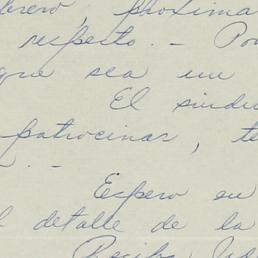 brero, próxima
respecto. - Por
que sea un
El sindi
patrocinar, te
. -
Espero su
l detalle de la
Reciba Ud